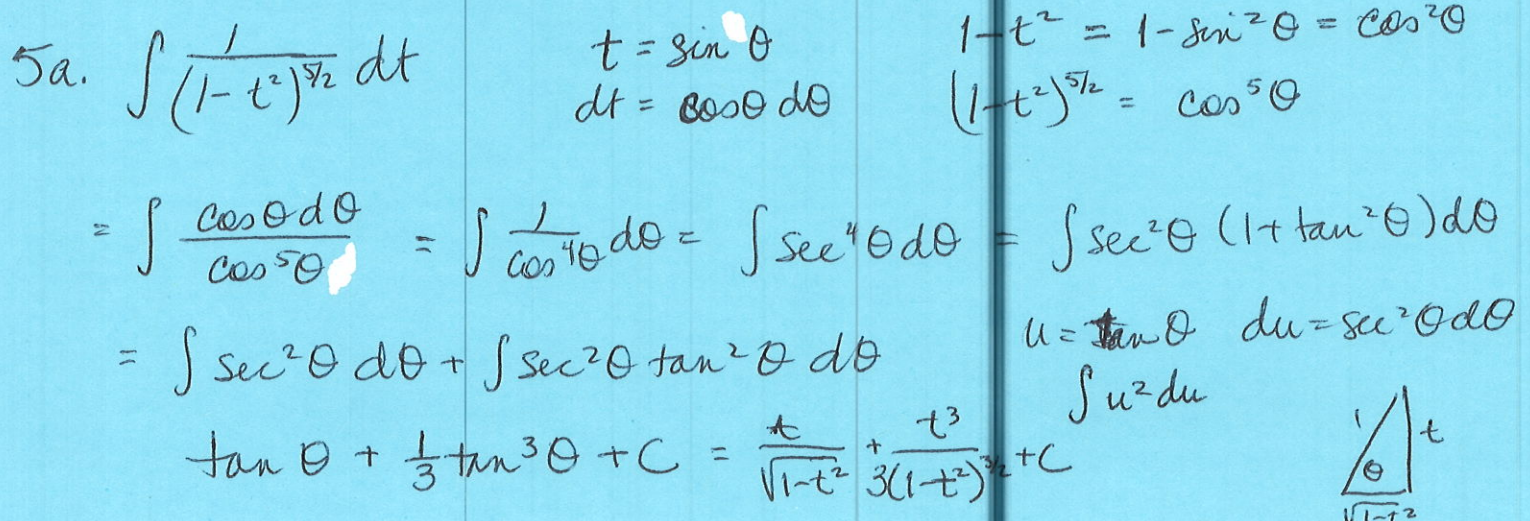 5a. ∫ 1/(1-t²)^5/2 dt   t = sin θ   1-t² = 1-sin²θ = cos²θ
dt = cosθ dθ   (1-t²)^5/2 = cos⁵θ
= ∫ cosθdθ/cos⁵θ = ∫ 1/cos⁴θ dθ = ∫ sec⁴θdθ = ∫ sec²θ (1+tan²θ)dθ
= ∫ sec²θ dθ + ∫ sec²θ tan²θ dθ   u = tan θ   du = sec²θdθ
∫ u² du
tan θ + 1/3 tan³θ + C = t/√(1-t²) + t³/3(1-t²)^3/2 + C   1 t
θ
√1-t²